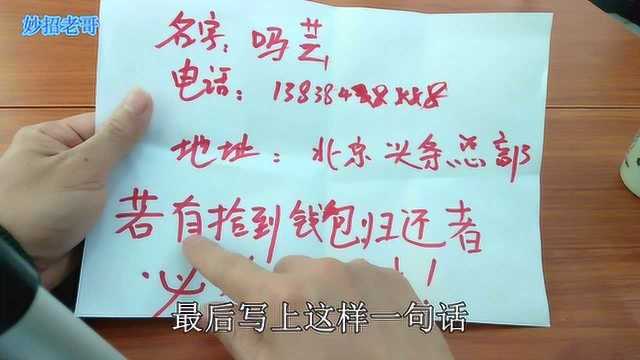 妙招老哥
名字：吗芸
电话：13838
地址：北京头条总部
若有拾到钱包归还者
必
最后写上这样一句话